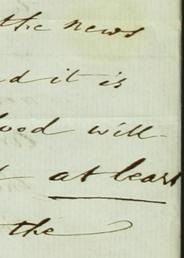 the news
d it is
ood will-
at least
the